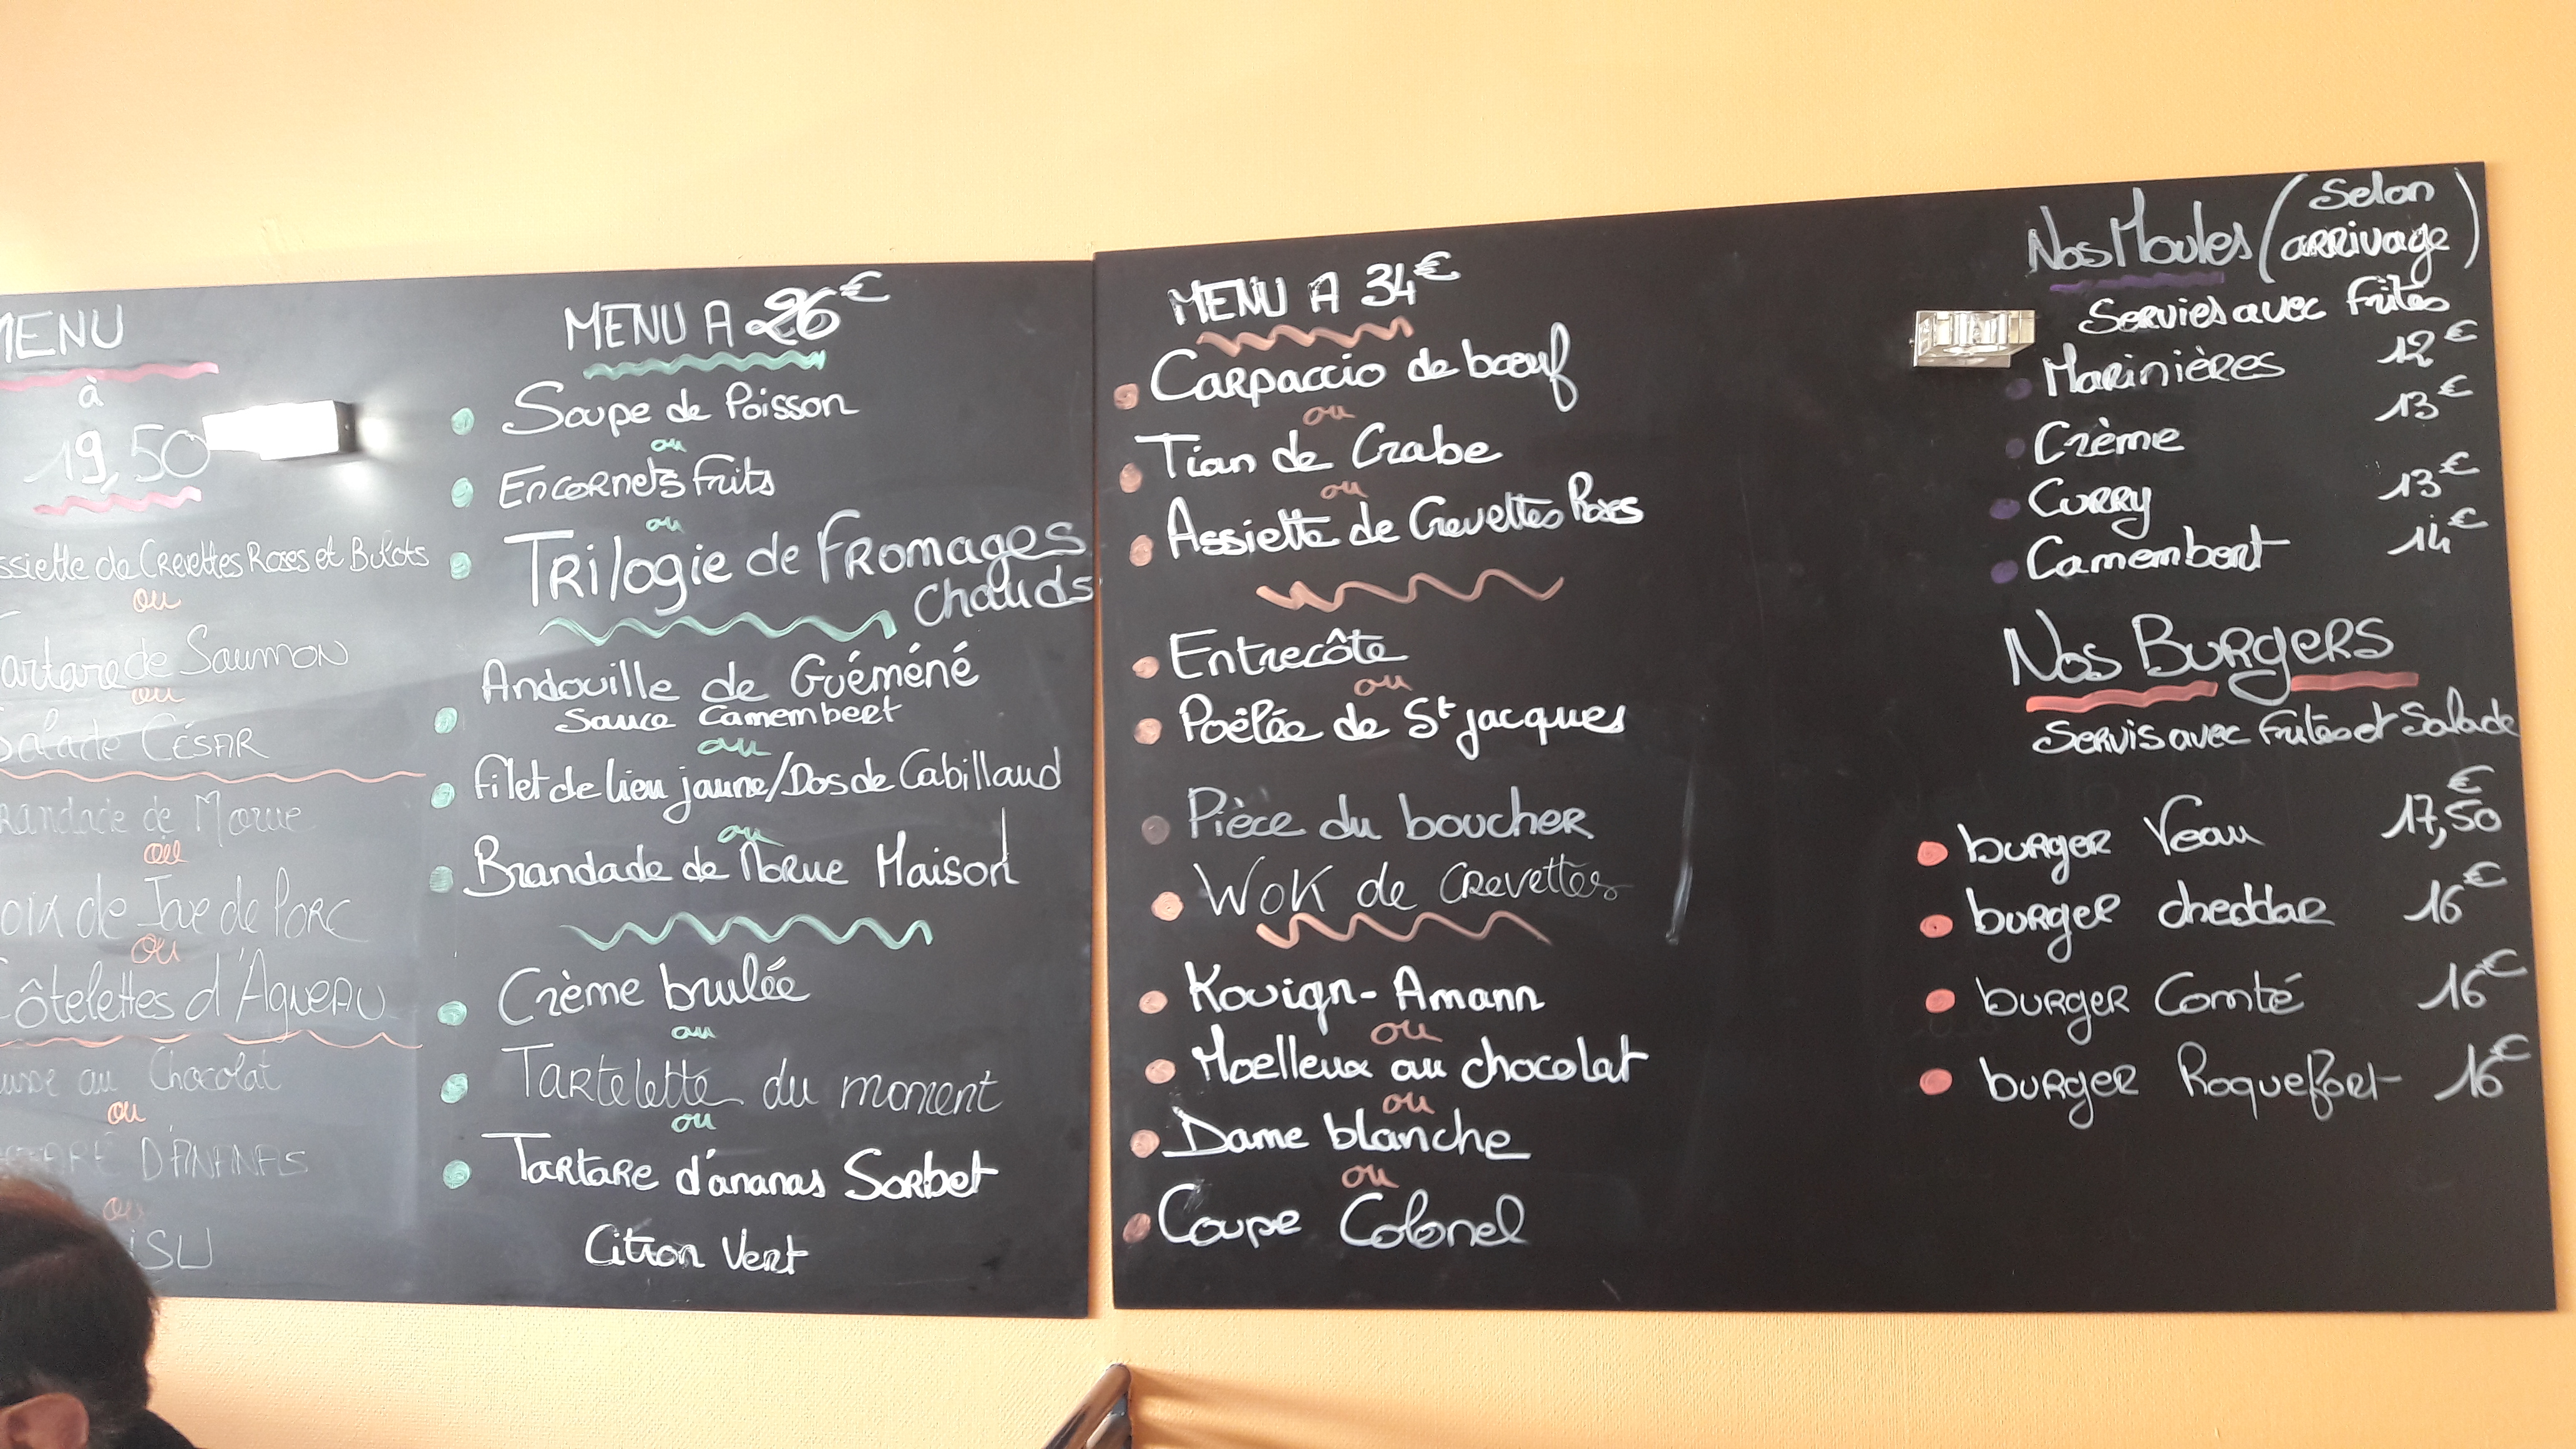 MENU
à
19,50
ssiette de Crevettes Roses et Bulots
ou
artare de Saumon
ou
Salade CÉSAR
randade de Morue
ou
oix de Joue de Porc
ou
Côtelettes d'Agneau
usse au Chocolat
ou
TARE D'ANANAS
ou
iSU
MENU A 26€
Soupe de Poisson
ou
Encornets Frits
ou
Trilogie de Fromages
chauds
Andouille de Guéméné
Sauce Camembert
ou
Filet de lieu jaune/Dos de Cabillaud
ou
Brandade de Morue Maison
Crème brulée
ou
Tartelette du moment
ou
Tartare d'ananas Sorbet
Citron Vert
MENU A 34€
Carpaccio de bœuf
ou
Tian de Crabe
ou
Assiette de Crevettes Roses
Entrecôte
ou
Poêlée de St jacques
Pièce du boucher
Wok de Crevettes
Kouign-Amann
ou
Moelleux au chocolat
ou
Dame blanche
ou
Coupe Colonel
Nos Moules (Selon
arrivage)
Servies avec Frites
Marinières 12€
Crème 13€
Curry 13€
Camembert 14€
Nos Burgers
Servis avec Frites et Salade
burger Veau 17,50€
burger cheddar 16€
burger Comté 16€
burger Roquefort 16€